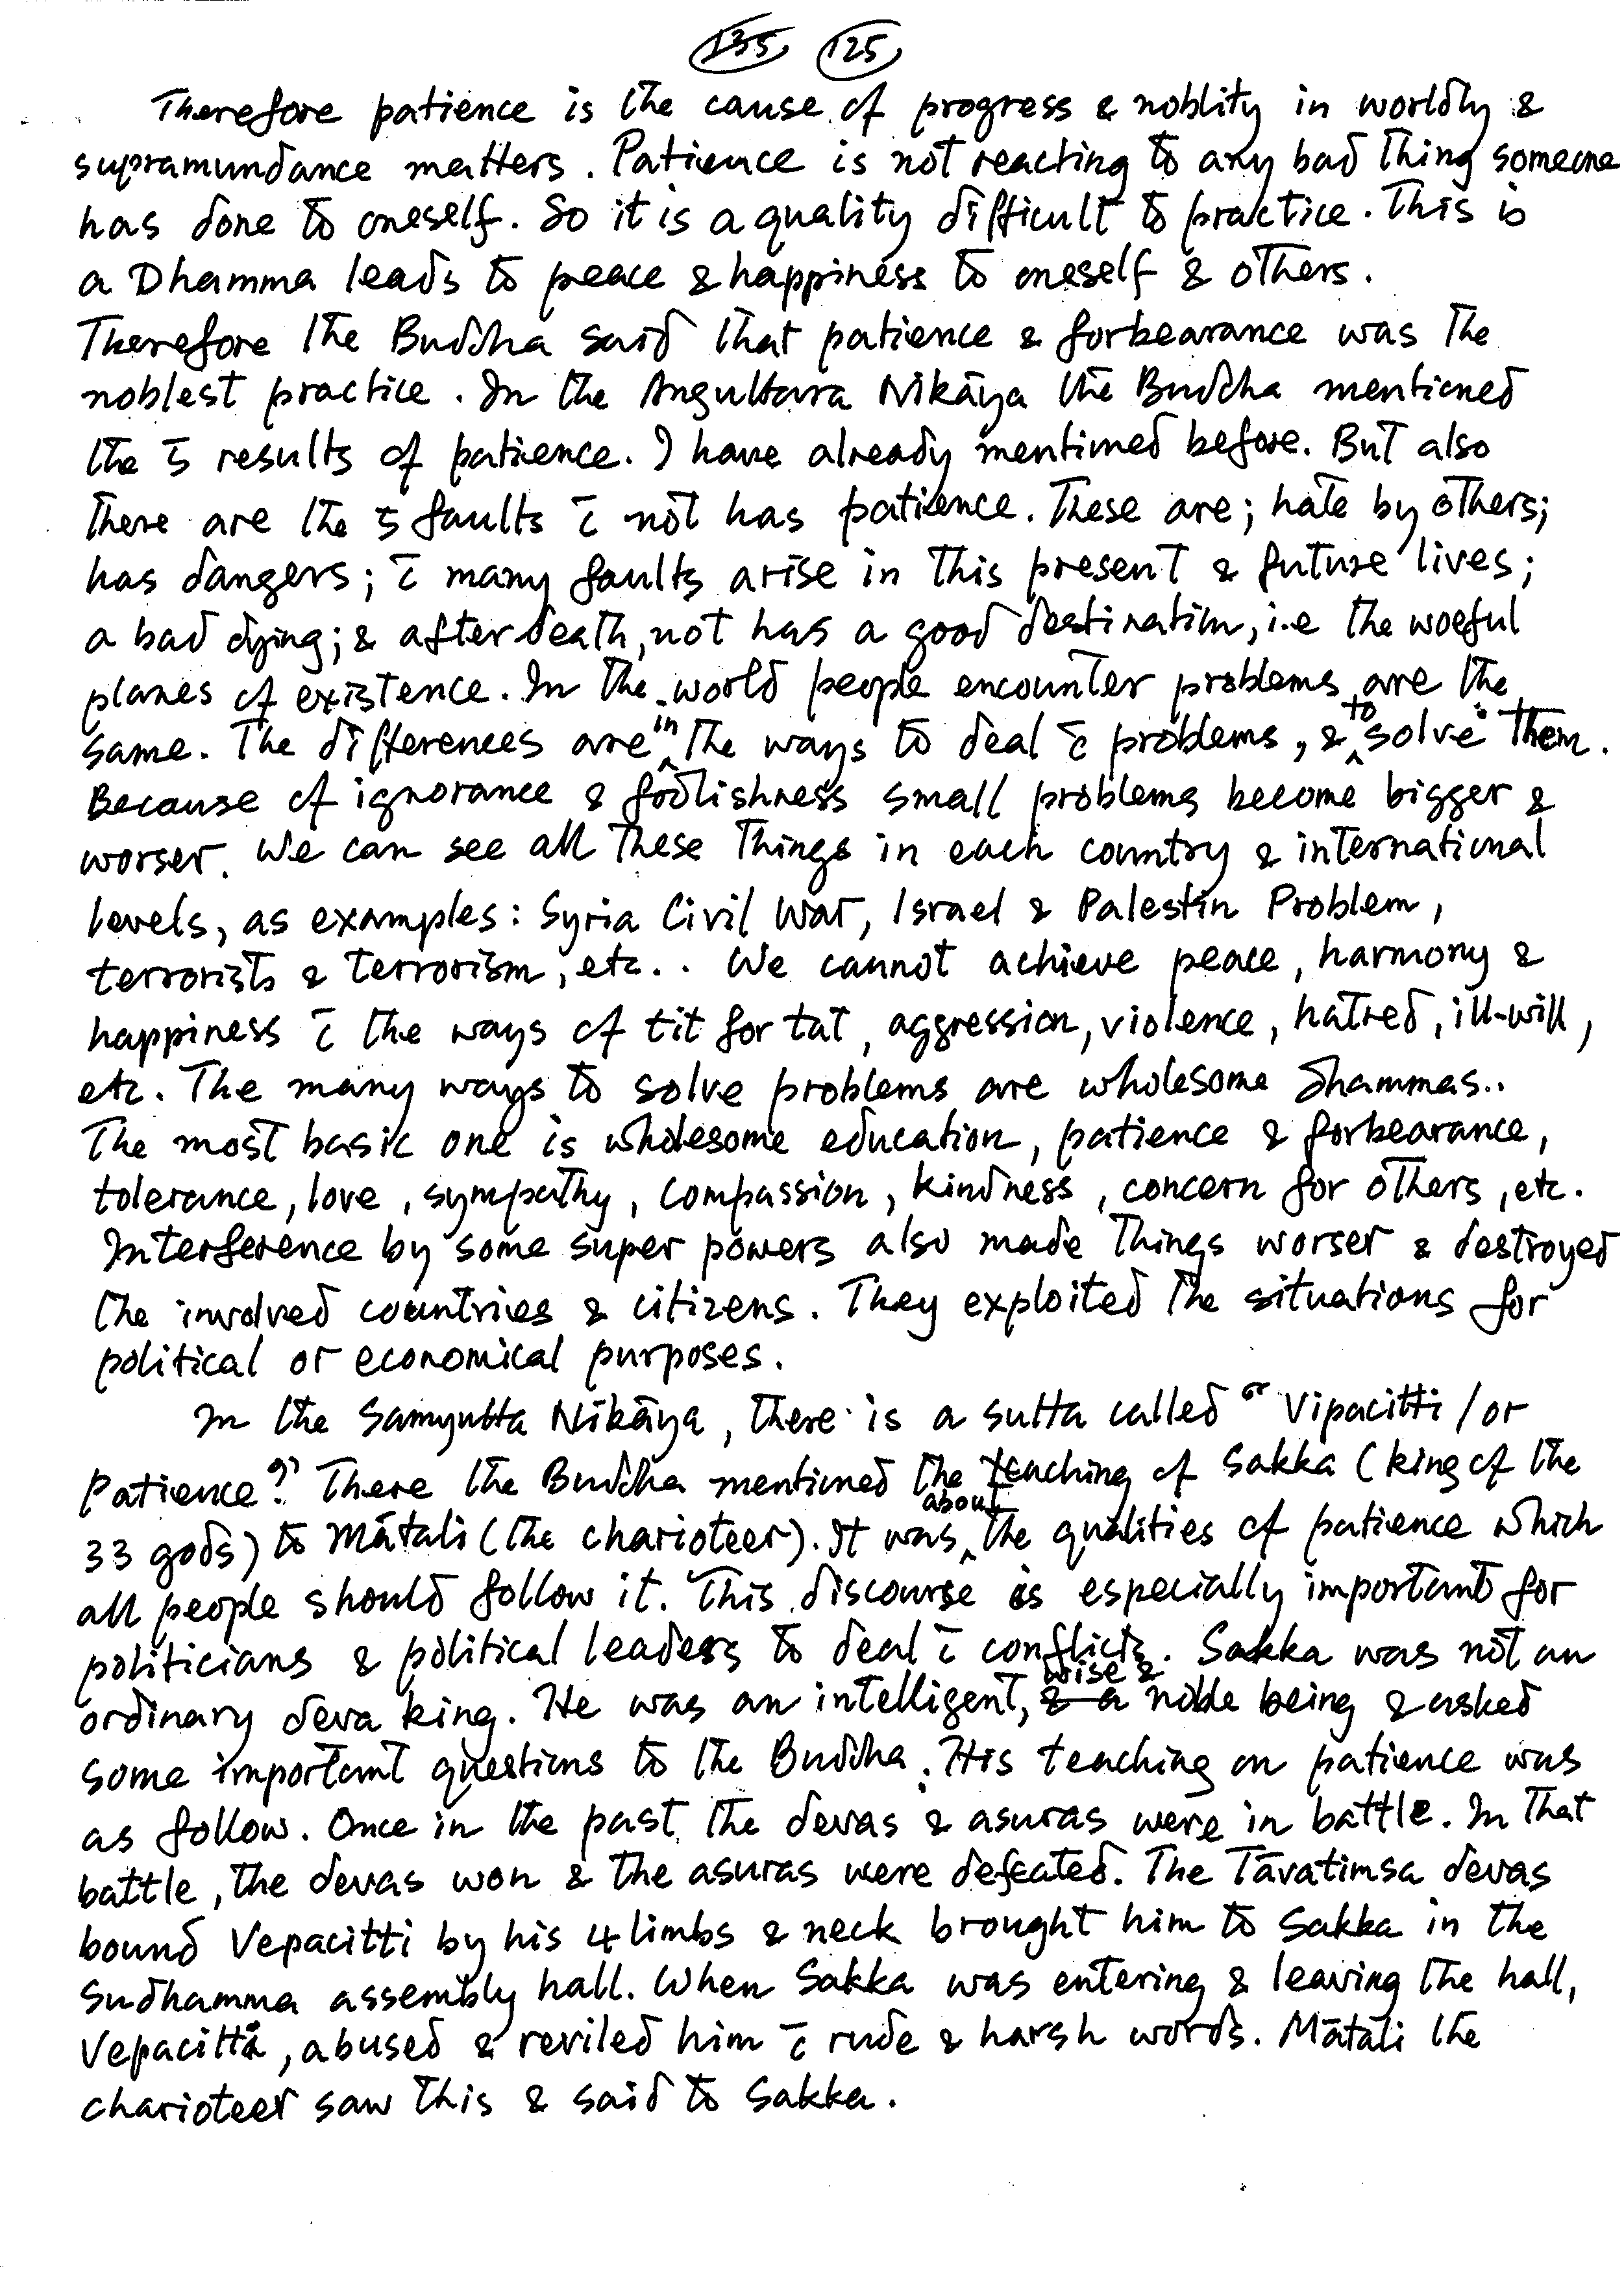 135 125
Therefore patience is the cause of progress & noblity in worldly &
supramundance matters. Patience is not reacting to any bad thing someone
has done to oneself. So it is a quality difficult to practice. This is
a Dhamma leads to peace & happiness to oneself & others.
Therefore the Buddha said that patience & forbearance was the
noblest practice. In the Anguttara Nikāya the Buddha mentioned
the 5 results of patience. I have already mentioned before. But also
there are the 5 faults c̄ not has patience. These are; hate by others;
has dangers; c̄ many faults arise in this present & future lives;
a bad dying; & after death, not has a good destination, i.e the woeful
planes of existence. In the world people encounter problems are the
same. The differences are in the ways to deal c̄ problems, & to solve them.
Because of ignorance & foolishness small problems become bigger &
worser. We can see all these things in each country & international
levels, as examples: Syria Civil War, Israel & Palestin Problem,
terrorists & terrorism, etc.. We cannot achieve peace, harmony &
happiness c̄ the ways of tit for tat, aggression, violence, hatred, ill-will,
etc. The many ways to solve problems are wholesome dhammas..
The most basic one is wholesome education, patience & forbearance,
tolerance, love, sympathy, compassion, kindness, concern for others, etc.
Interference by some super powers also made things worser & destroyed
the involved countries & citizens. They exploited the situations for
political or economical purposes.
In the Samyutta Nikāya, there is a sutta called " Vipacitti / or
Patience". There the Buddha mentioned the teaching of Sakka (king of the
33 gods) to Mātali (the charioteer). It was about the qualities of patience which
all people should follow it. This discourse is especially important for
politicians & political leaders to deal c̄ conflicts. Sakka was not an
ordinary deva king. He was an intelligent, wise & noble being & asked
some important questions to the Buddha. His teaching on patience was
as follow. Once in the past the devas & asuras were in battle. In that
battle, the devas won & the asuras were defeated. The Tāvatimsa devas
bound Vepacitti by his 4 limbs & neck brought him to Sakka in the
Sudhamma assembly hall. When Sakka was entering & leaving the hall,
Vepacitti, abused & reviled him c̄ rude & harsh words. Mātali the
charioteer saw this & said to Sakka.